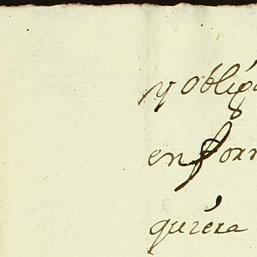 y oblig
en form
quiera